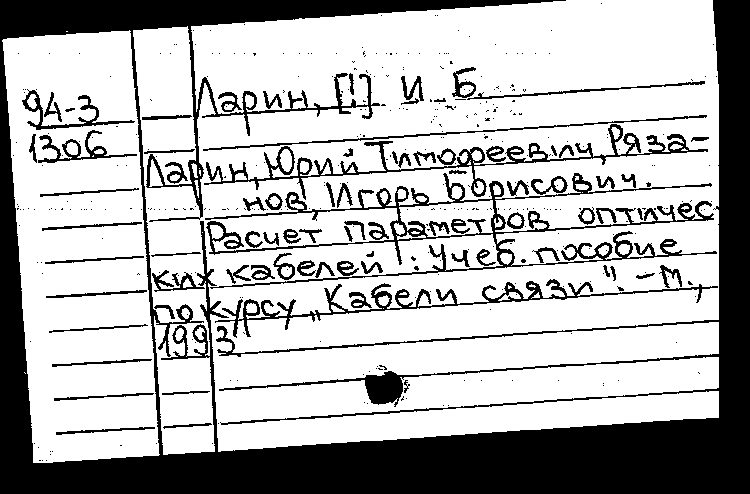 94-3
1306
Ларин, [!] И Б.
Ларин, Юрий Тимофеевич, Ряза-
нов, Игорь Борисович.
Расчет параметров оптичес-
ких кабелей!: Учеб. пособие
по курсу „Кабели связи". - М.,
1993.